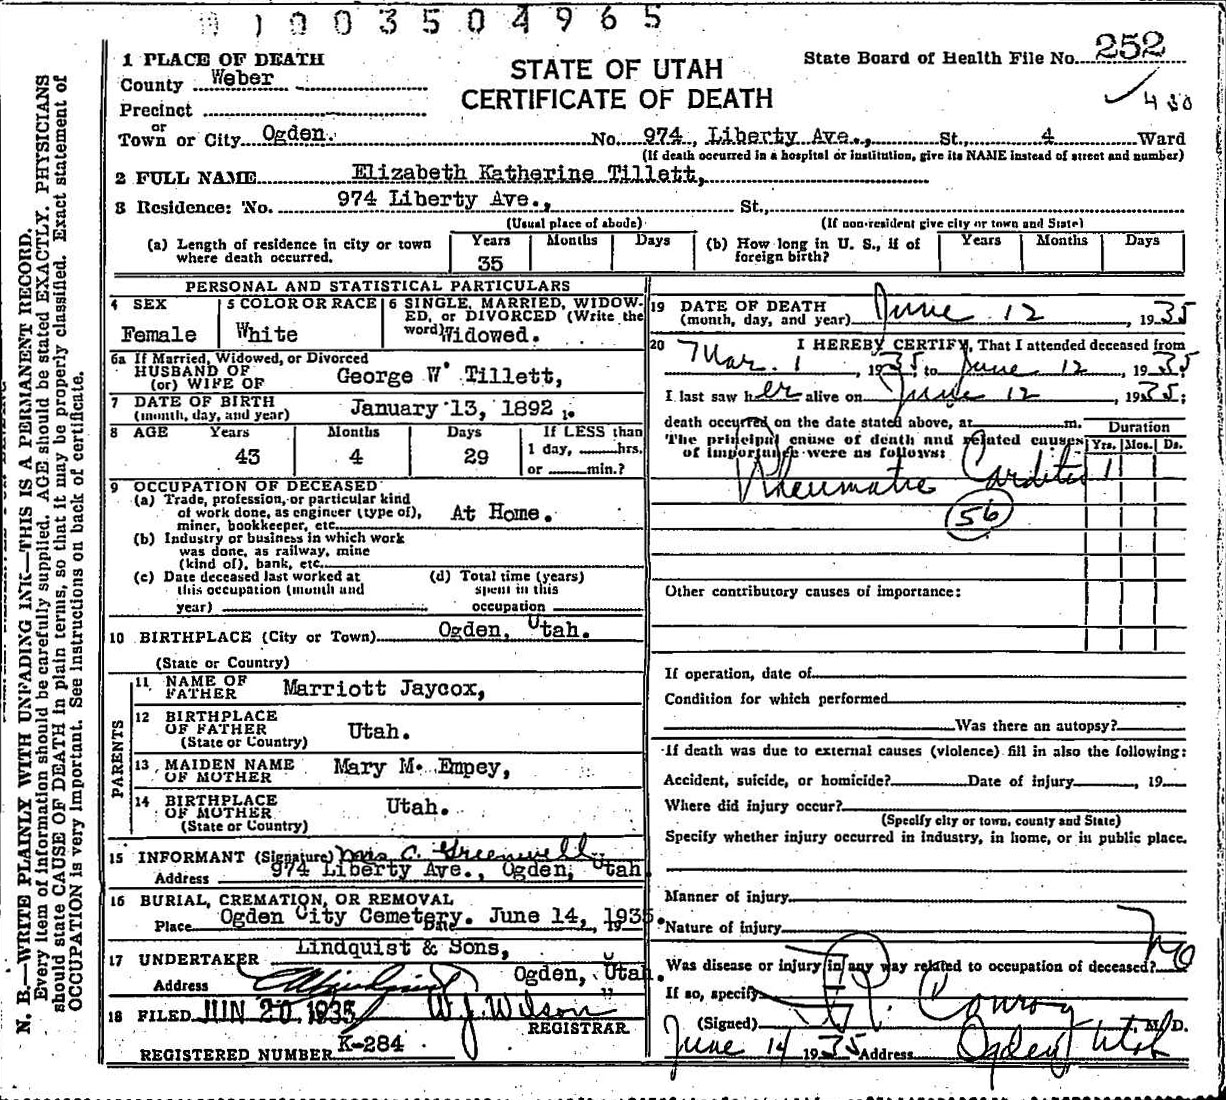 1003504965
1 PLACE OF DEATH
County Weber
Precinct
or
Town or City Ogden. No. 974, Liberty Ave., St., 4 Ward
(If death occurred in a hospital or institution, give its NAME instead of street and number)
STATE OF UTAH
CERTIFICATE OF DEATH
State Board of Health File No. 252
480
2 FULL NAME Elizabeth Katherine Tillett,
3 Residence: No. 974 Liberty Ave., St.,
(Usual place of abode) (If non-resident give city or town and State)
(a) Length of residence in city or town where death occurred. Years 35 Months Days
(b) How long in U. S., if of foreign birth? Years Months Days
PERSONAL AND STATISTICAL PARTICULARS
4 SEX
Female
5 COLOR OR RACE
White
6 SINGLE, MARRIED, WIDOWED, or DIVORCED (Write the word) Widowed.
6a If Married, Widowed, or Divorced
HUSBAND OF
(or) WIFE OF George W. Tillett,
7 DATE OF BIRTH
(month, day, and year) January 13, 1892.
8 AGE Years Months Days If LESS than
43 4 29 1 day, hrs.
or min.?
9 OCCUPATION OF DECEASED
(a) Trade, profession, or particular kind
of work done, as engineer (type of),
miner, bookkeeper, etc. At Home.
(b) Industry or business in which work
was done, as railway, mine
(kind of), bank, etc.
(c) Date deceased last worked at
this occupation (month and
year)
(d) Total time (years)
spent in this
occupation
10 BIRTHPLACE (City or Town) Ogden, Utah.
(State or Country)
PARENTS
11 NAME OF
FATHER Marriott Jaycox,
12 BIRTHPLACE
OF FATHER Utah.
(State or Country)
13 MAIDEN NAME
OF MOTHER Mary M. Empey,
14 BIRTHPLACE
OF MOTHER Utah.
(State or Country)
15 INFORMANT (Signature) Mrs C. Greenwell
Address 974 Liberty Ave., Ogden, Utah
16 BURIAL, CREMATION, OR REMOVAL
Place Ogden City Cemetery. Date June 14, 1935.
17 UNDERTAKER Lindquist & Sons,
Address Ogden, Utah.
18 FILED JUN 20 1935 W. J. Wilson
REGISTRAR
REGISTERED NUMBER K-284
19 DATE OF DEATH
(month, day, and year) June 12, 1935
20 I HEREBY CERTIFY, That I attended deceased from
Mar. 1, 1935, to June 12, 1935
I last saw her alive on June 12, 1935;
death occurred on the date stated above, at m.
The principal cause of death and related causes
of importance were as follows:
Duration
Yrs. Mos. Ds.
Rheumatic Carditis 1
56
Other contributory causes of importance:
If operation, date of
Condition for which performed
Was there an autopsy?
If death was due to external causes (violence) fill in also the following:
Accident, suicide, or homicide? Date of injury, 19
Where did injury occur?
(Specify city or town, county and State)
Specify whether injury occurred in industry, in home, or in public place.
Manner of injury
Nature of injury
Was disease or injury in any way related to occupation of deceased? No
If so, specify
(Signed) Conroy, M. D.
June 14 1935 Address Ogden Utah
N. B.—WRITE PLAINLY WITH UNFADING INK—THIS IS A PERMANENT RECORD.
Every item of information should be carefully supplied. AGE should be stated EXACTLY. PHYSICIANS
should state CAUSE OF DEATH in plain terms, so that it may be properly classified. Exact statement of
OCCUPATION is very important. See instructions on back of certificate.